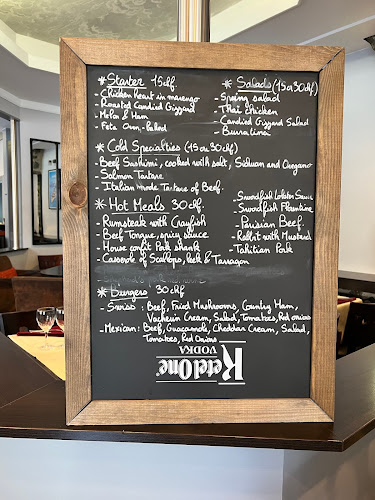 * Starter 15chf.
- Chicken heart in marengo
- Roasted Candied Gizzard
- Melon & Ham
- Feta Oven-baked
* Salads (15 or 30chf)
- Spring salad
- Thai chicken
- Candied Gizzard Salad
- Buratina
* Cold Specialties (19 or 30chf)
- Beef Sashimi, cooked with salt, and Oregano
- Salmon Tartare
- Italian Mode Tartare of Beef.
* Hot Meals 30chf.
- Rumsteak with Crayfish
- Beef Tongue, spicy sauce
- House confit Pork shank
- Casserole of Scallops, Leek & Tarragon
- Swordfish Lobster Sauce
- Swordfish Florentine
- Parisian Beef.
- Rabbit with Mustard
- Tahitian Pork
* Burgers 30chf
- Swiss : Beef, Fried Mushrooms, Country Ham,
Vacherin Cream, Salad, Tomatoes, Red onions
- Mexican: Beef, Guacamole, Cheddar Cream, Salad,
Tomatoes, Red Onions
Ketel One
VODKA